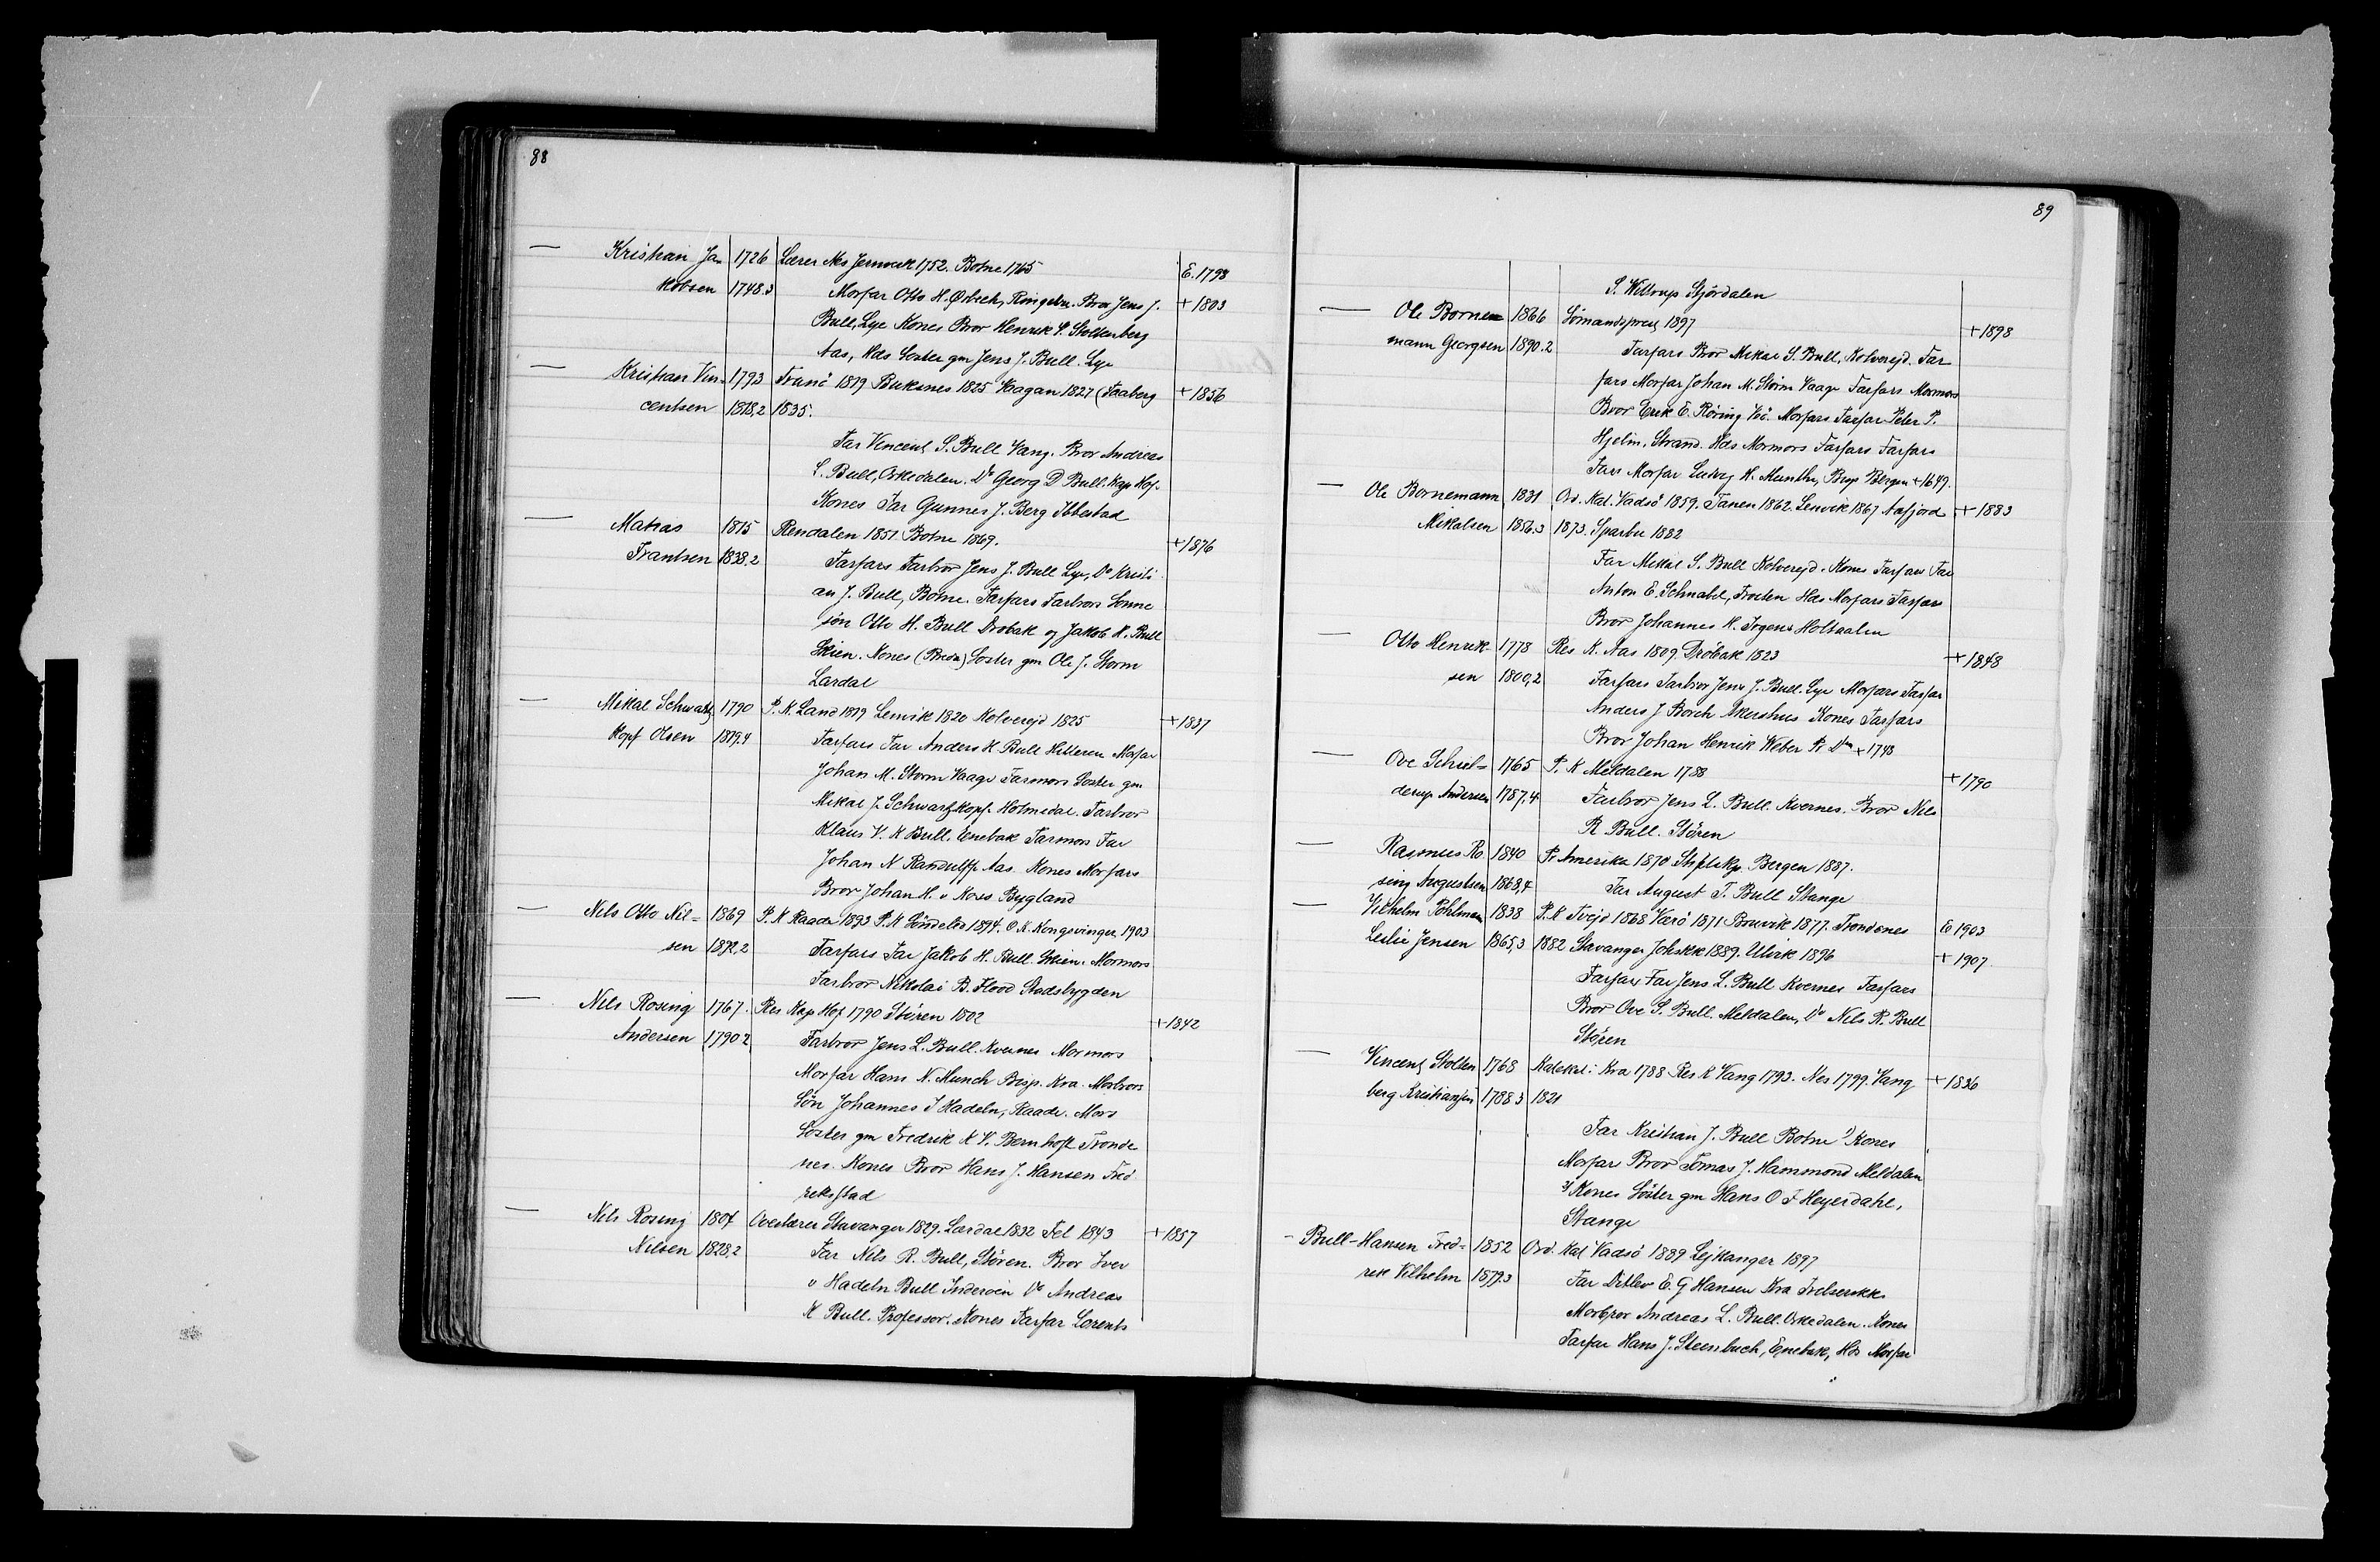 88
— Kristian Ja- 1726 Lærer Nes Jernverk 1752. Botne 1765 E. 1798
kobsen 1748.3 Morfar Otto H. Ørbech, Ringebu. Bror Jens J. + 1803
Bull, Lye Kones Bror Henrik S. Stoltenberg
Aas, Hds Søster gm Jens J. Bull. Lye
— Kristian Vin- 1793 Tranö 1819 Buksnes 1825 Vaagan 1827 (Faaberg + 1856
centsen 1818,2 1835.
Far Vincent S. Bull Vang. Bror Andreas
L. Bull, Orkedalen. Do Georg D Bull. Kap Hof.
Kones Far Gunner J. Berg Ibbestad
— Matias 1815 Rendalen 1851 Botne 1869. + 1876
Frantsen 1838.2 Farfars Farbror Jens J. Bull Lye, Do Kristi
an J. Bull, Botne. Farfars Farbrors Sønne
søn Otto H. Bull Drøbak og Jakob H. Bull
Skien. Kones (Breda) Søster gm Ole J. Storm
Lardal
— Mikal Schwartz 1790 P. K. Land 1819 Lenvik 1820 Kolvereid 1825 + 1837
kopf Olsen 1819.4 Farfars Far Anders K Bull Hitteren Morfar
Johan M. Storm Vaage Farmors Søster gm
Mikal J. Schwartzkopf. Holmedal. Farbror
Klaus V. K Bull. Enebak Farmors Far
Johan N Randulff. Aas. Kones Morfars
Bror Johan H. v Koss Bygland
— Nils Otto Nil= 1869 P. K Raade 1893 P. K Söndeled 1894. O. K. Kongsvinger 1903
sen 1892,2 Farfars Far Jakob H. Bull. Skien. Mormors
Farbror Nikolai B. Flood Stadsbygden
— Nils Rosing 1767. Res Kap Hof 1790 Stören 1802 + 1842
Andersen 1790.2 Farbror Jens L. Bull. Kvernes Mormors
Morfar Hans N. Munch Bisp. Kra. Morbrors
Søn Johannes I Hadeln, Raade. Mors
Søster gm Fredrik K V. Bernhoft Tronde
nes. Kones Bror Hans J. Hansen Fred
rekstad
— Nils Rosing 1804 Overlærer Stavanger 1829. Lardal 1832 Fet 1843 + 1857
Nilsen 1828.2 Far Nils R. Bull, Stören. Bror Iver
v Hadeln Bull Inderöen Do Andreas
K Bull. Professor. Kones Farfar Lorents
89
S. Wittrup Stjördalen
— Ole Borne= 1866 Sömandsprest 1897 + 1898
mann Georgsen 1890.2 Farfars Bror Mikal S. Bull, Kolvereid. Far
fars Morfar Johan M. Storm Vaage Farfars Mormors
Bror Erik E. Röring Hö. Morfars Farfar Peter P.
Hjelm, Strand. Hds Mormors Farfars Farfars
Fars Morfar Ludvig H. Munthe, Bisp Bergen + 1649.
— Ole Bornemann 1831 Ord. Kat. Vadsö 1859. Tanen 1862. Lenvik 1867 Aafjord + 1883
Mikalsen 1856.3 1873. Sparbu 1882
Far Mikal S. Bull Kolvereid. Kones Farfars Far
Anton E. Schnabel, Frosten Hds Morfars Farfars
Bror Johannes H. Irgens Holtaalen
— Otto Henrik- 1778 Res K. Aas 1809. Dröbak 1823 + 1848
sen 1800,2 Farfars Farbror Jens J. Bull. Lye Morfars Farfar
Anders J Borch Akershus Kones Farfars
Bror Johan Henrik Weber Pr Dm + 1748
— Ove Schiel= 1765 P. K Meldalen 1788 + 1790
derup Andersen 1787,4 Farbror Jens L. Bull. Kvernes. Bror Nils
R Bull. Stören
— Rasmus Ro 1840 Pr Amerika 1870 Stiftskap. Bergen 1887.
sing Augustsen 1868,4 Far August T. Bull Stange
— Vilhelm Pohlmann 1838 P. K Tveid 1868 Værö 1871 Bruvik 1877. Trondenes E 1903
Leslie Jensen 1865,3 1882 Stavanger Johskk 1889. Ulvik 1896 + 1907.
Farfars Far Jens L. Bull Kvernes Farfars
Bror Ove S. Bull. Meldalen, Do Nils R. Bull
Stören
— Vincent Stolten 1768 Kateket i Kra 1788 Res K Vang 1793. Nes 1799. Vang + 1836
berg Kristiansen 1788.3 1821
Far Kristian J. Bull Botne 1) Kones
Morfar Bror Tomas J. Hammond Meldalen
2) Kones Söster gm Hans O F Heyerdahl,
Stange
- Bull-Hansen Fred= 1852 Ord. Kat Vadsö 1889 Leikanger 1897
rik Vilhelm 1879.3 Far Ditlev E. G Hansen Kra Frelserskk
Morbror Andreas L. Bull. Orkedalen. Kones
Farfar Hans J. Steenbuch, Enebak, Hds Morfar